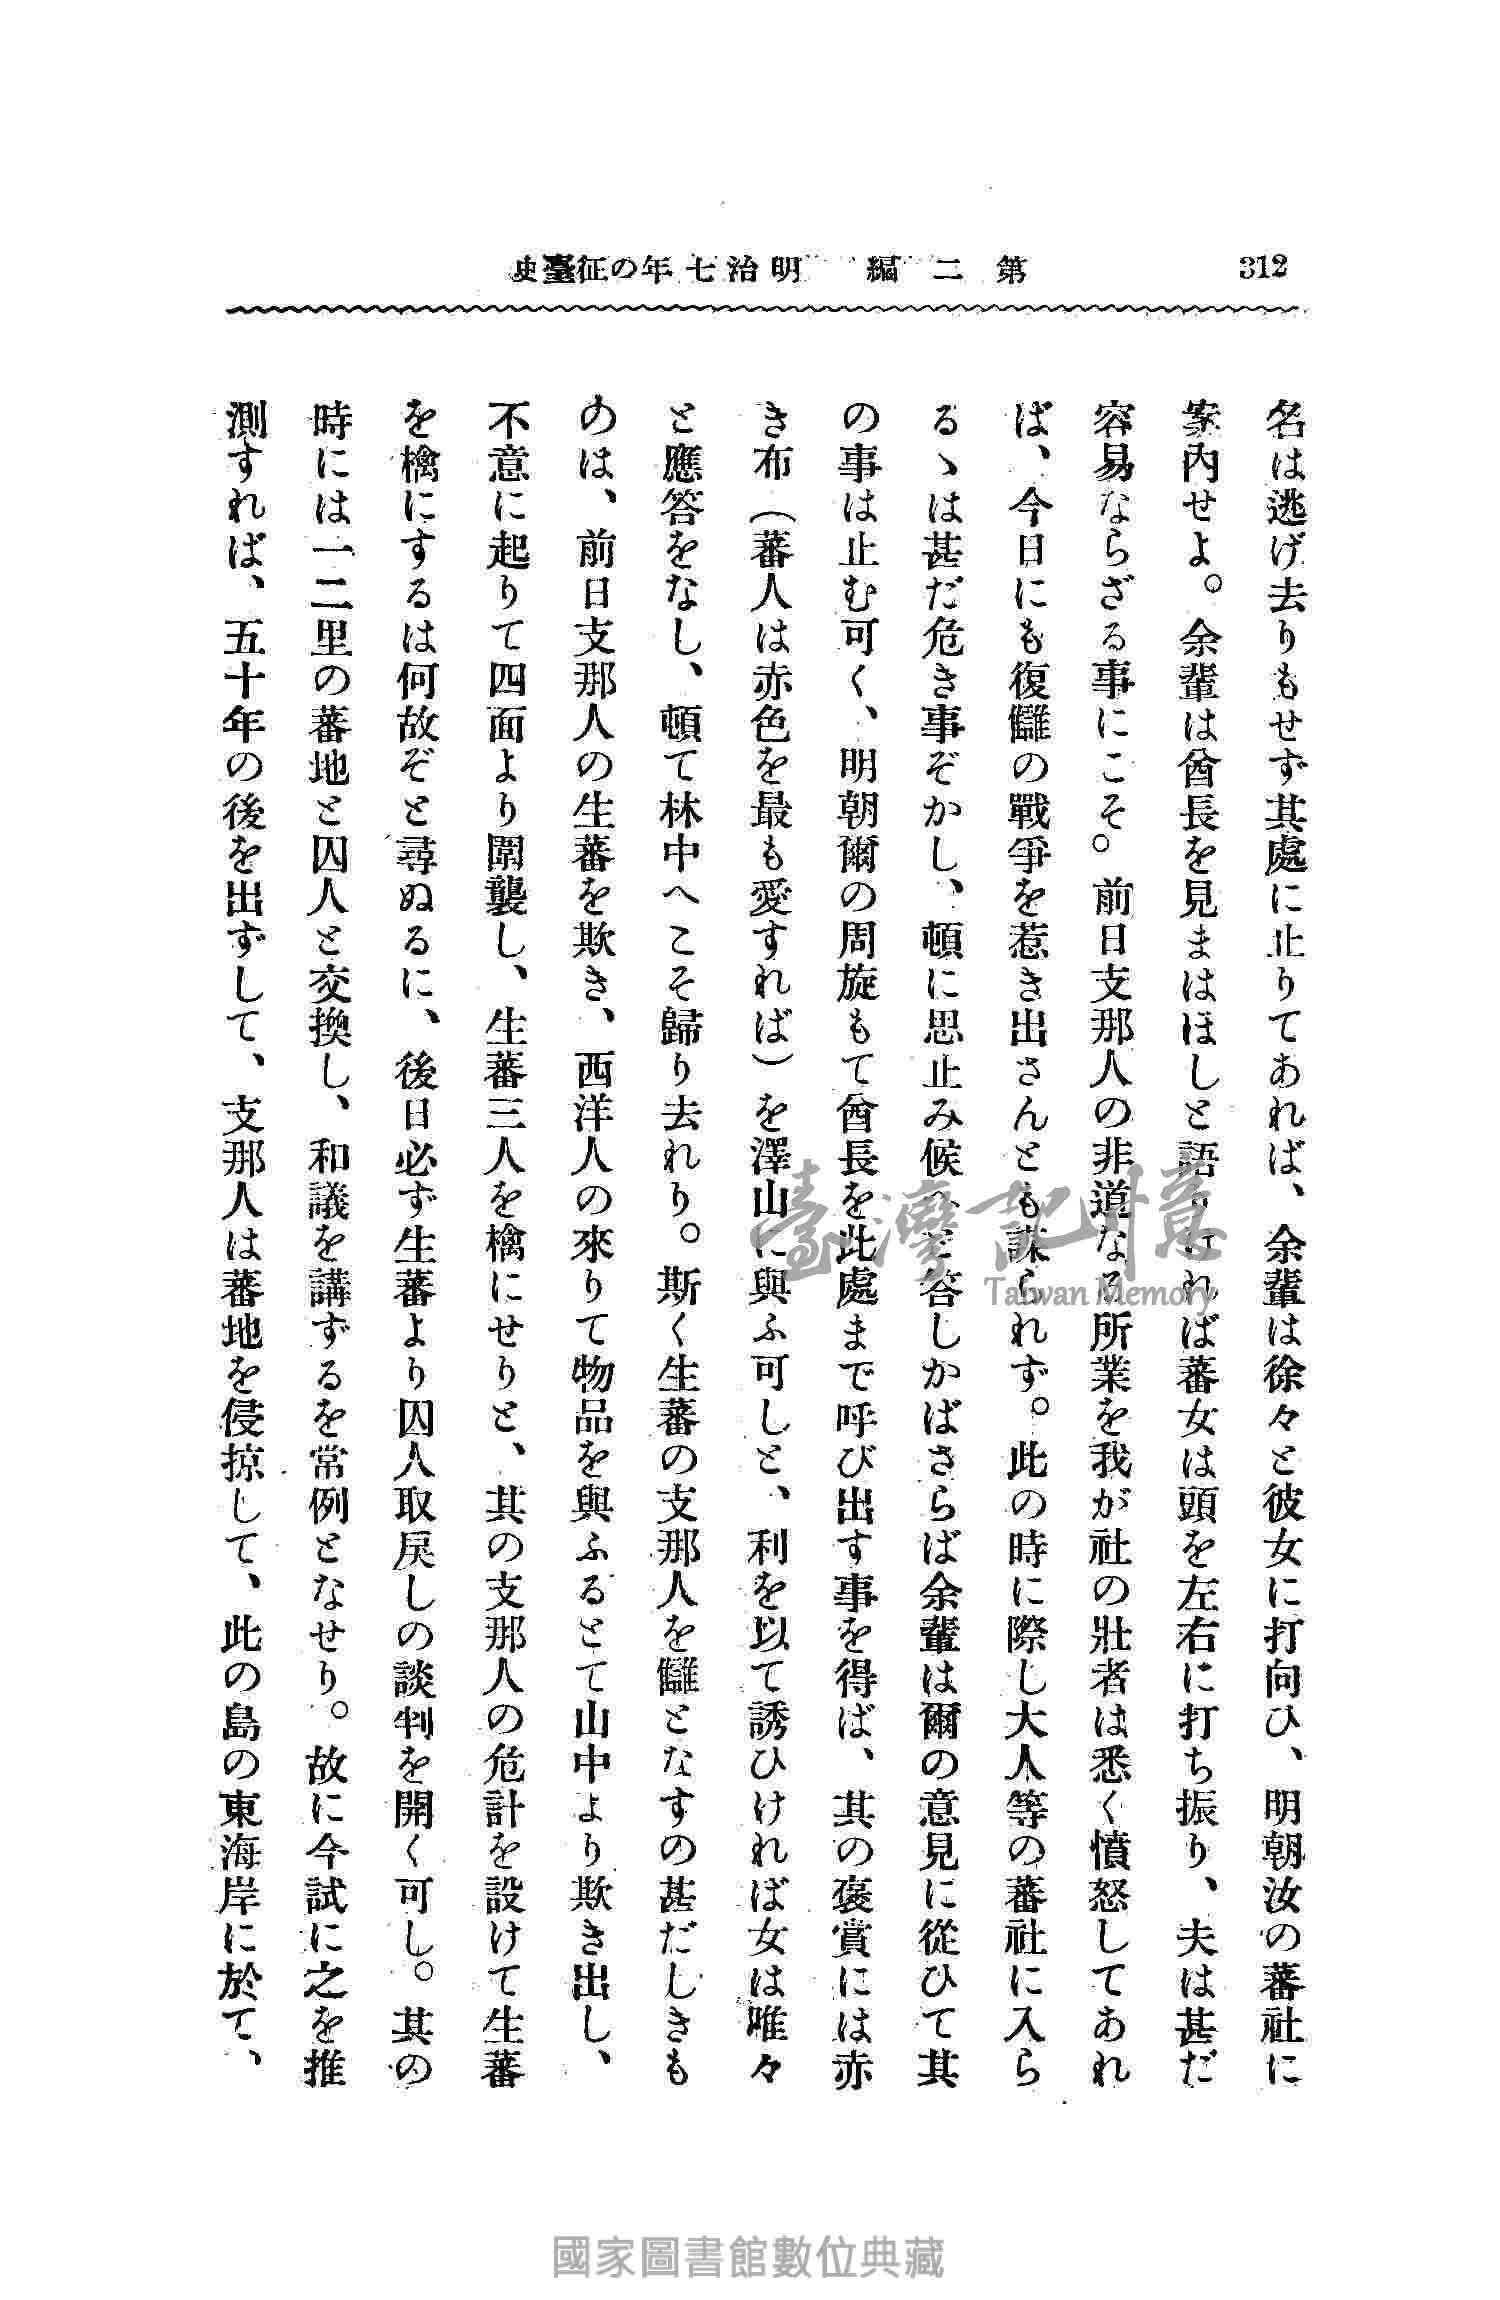 312
第二編 明治七年の征臺史
名は逃げ去りもせず其處に止りてあれば、余輩は徐々と彼女に打向ひ、明朝汝の蕃社に
案内せよ。余輩は酋長を見まはほしと語りければ蕃女は頭を左右に打ち振り、夫は甚だ
容易ならざる事にこそ。前日支那人の非道なる所業を我が社の壯者は悉く憤怒してあれ
ば、今日にも復讎の戰爭を惹き出さんとも謀られず。此の時に際し大人等の蕃社に入ら
るゝは甚だ危き事ぞかし、頓に思止み候へと答しかばさらば余輩は爾の意見に從ひて其
の事は止む可く、明朝爾の周旋もて酋長を此處まで呼び出す事を得ば、其の褒賞には赤
き布（蕃人は赤色を最も愛すれば）を澤山に與ふ可しと、利を以て誘ひければ女は唯々
と應答をなし、頓て林中へこそ歸り去れり。斯く生蕃の支那人を讎となすの甚だしきも
のは、前日支那人の生蕃を欺き、西洋人の來りて物品を與ふるとて山中より欺き出し、
不意に起りて四面より圍襲し、生蕃三人を檎にせりと、其の支那人の危計を設けて生蕃
を檎にするは何故ぞと尋ぬるに、後日必ず生蕃より囚人取戻しの談判を開く可し。其の
時には一二里の蕃地と囚人と交換し、和議を講ずるを常例となせり。故に今試に之を推
測すれば、五十年の後を出ずして、支那人は蕃地を侵掠して、此の島の東海岸に於て、
臺灣記憶
Taiwan Memory
國家圖書館數位典藏